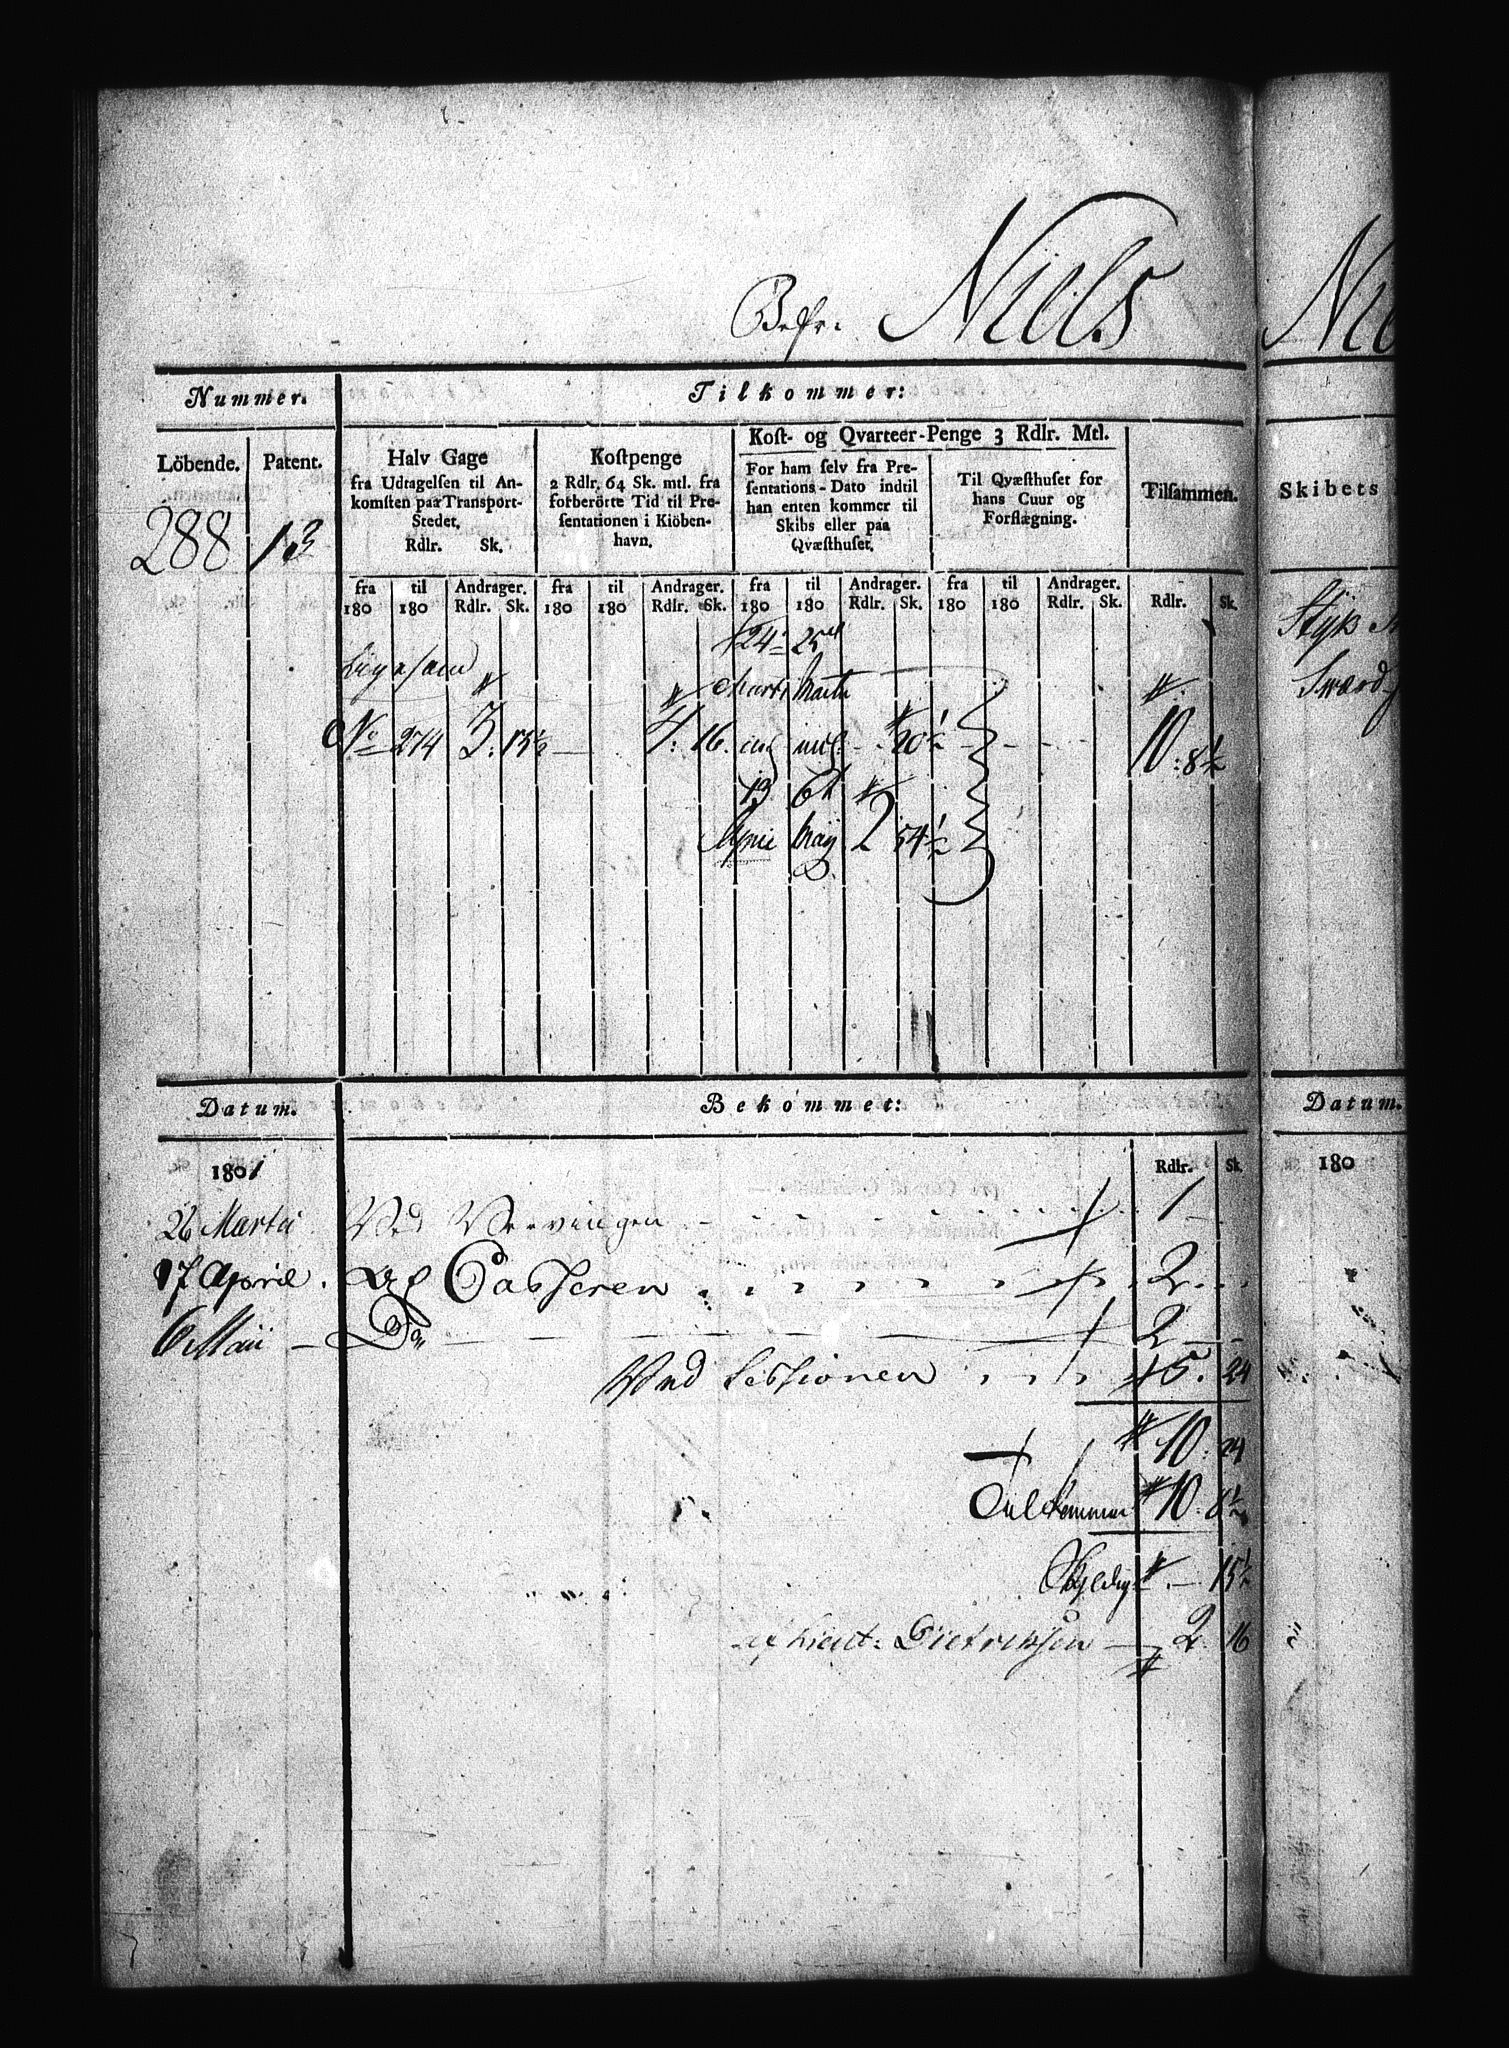 Befr: Niels
Nummer.
Tilkommer:
Löbende.
Patent.
Halv Gage
fra Udtagelsen til An-
komsten paa Transport-
Stedet.
Rdlr. Sk.
Kostpenge
2 Rdlr. 64 Sk. mtl. fra
forberörte Tid til Pre-
sentationen i Kiöben-
havn.
Kost- og Qvarteer-Penge 3 Rdlr. Mtl.
For ham selv fra Pre-
sentations-Dato indtil
han enten kommer til
Skibs eller paa
Qvæsthuset.
Til Qvæsthuset for
hans Cuur og
Forflægning.
Tilsammen.
288 13
fra til Andrager. fra til Andrager. fra til Andrager. fra til Andrager.
180 180 Rdlr. Sk. 180 180 Rdlr. Sk. 180 180 Rdlr. Sk. 180 180 Rdlr. Sk. Rdlr. Sk.
24 25
Ligesom Marti Marti
No 274 3: 15½ 4: 16. incl 20½ 10: 8½
13 6t
April Maij 2 54½
Datum.
Bekommet:
1801
Rdlr. Sk.
26 Martii Ved Mørvingen 1
17 April. Af Casseren 2
6 Maii Do 2
Ved Sessionen 5. 24
10: 24
Tilkommer 10: 8½
Skyldig 15½
af Lieut: Dietrichsen 2 16
Nie
Skibets
Styk
Sværd
Datum.
180